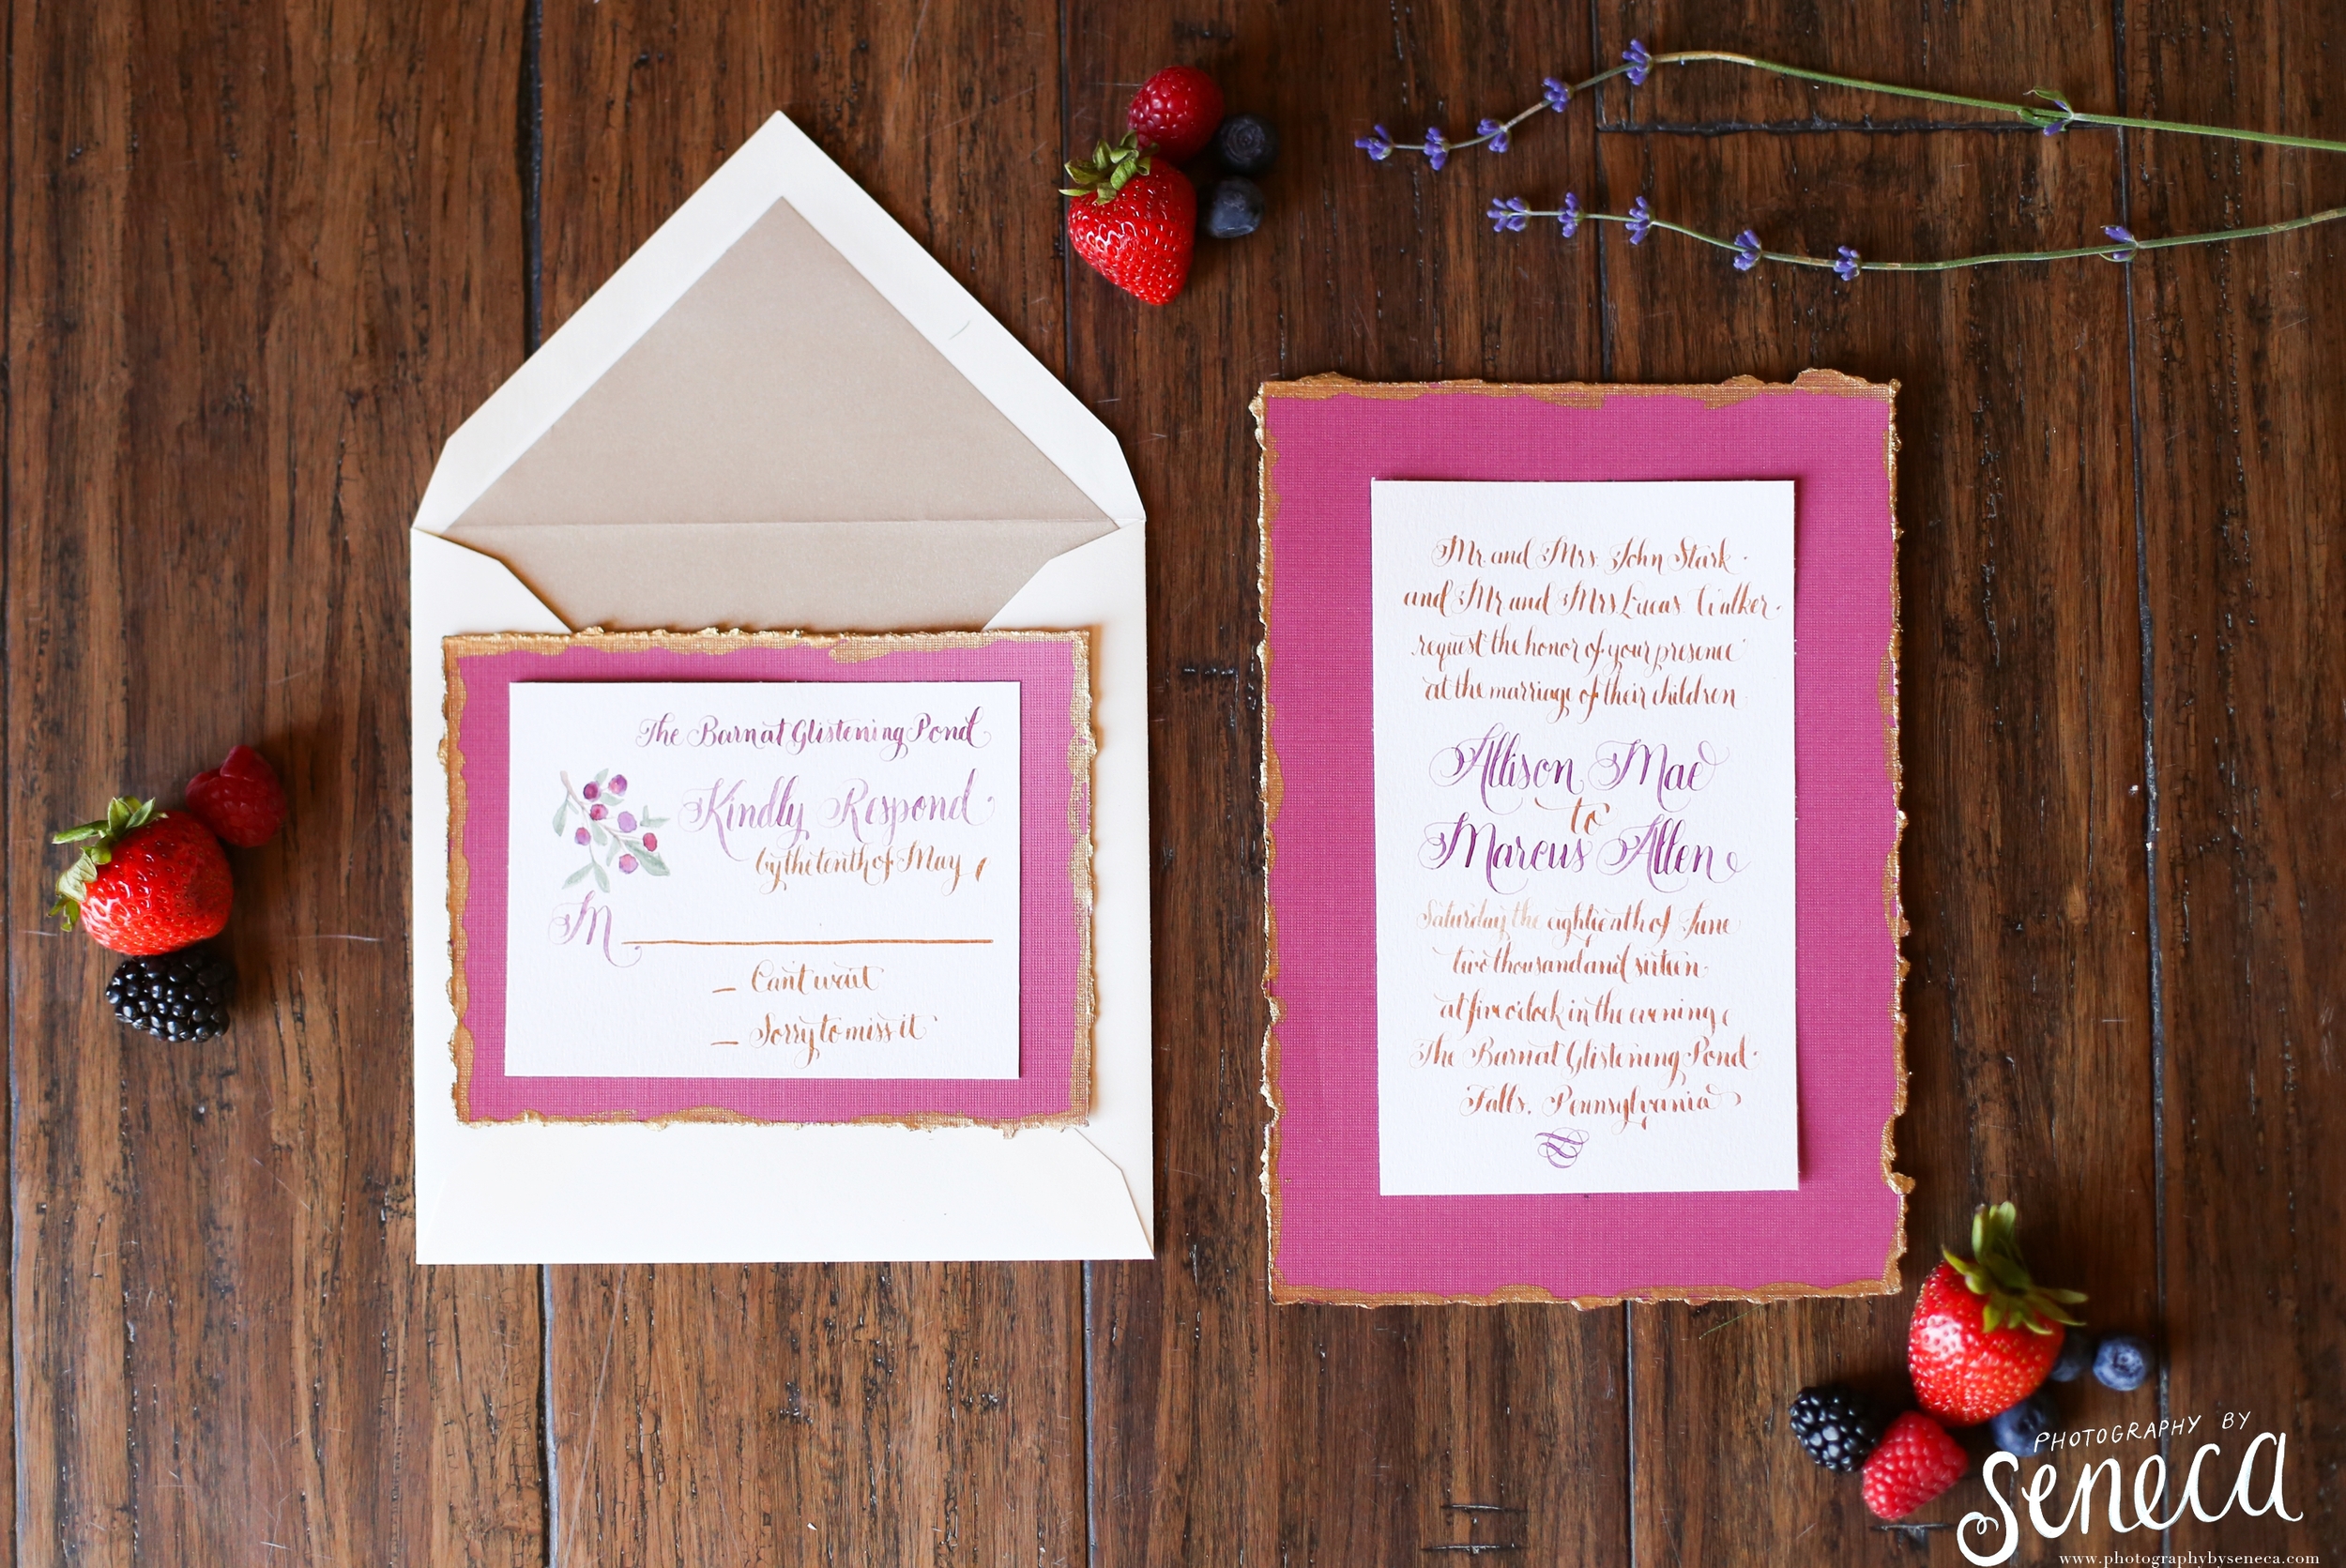 The Barn at Glistening Pond
Kindly Respond
by the tenth of May
M
Can't wait
Sorry to miss it
Mr. and Mrs. John Stark
and Mr. and Mrs. Lucas Walker
request the honor of your presence
at the marriage of their children
Allison Mae
to
Marcus Allen
Saturday the eighteenth of June
two thousand and sixteen
at five o'clock in the evening
The Barn at Glistening Pond
Falls, Pennsylvania
PHOTOGRAPHY BY
seneca
www.photographybyseneca.com